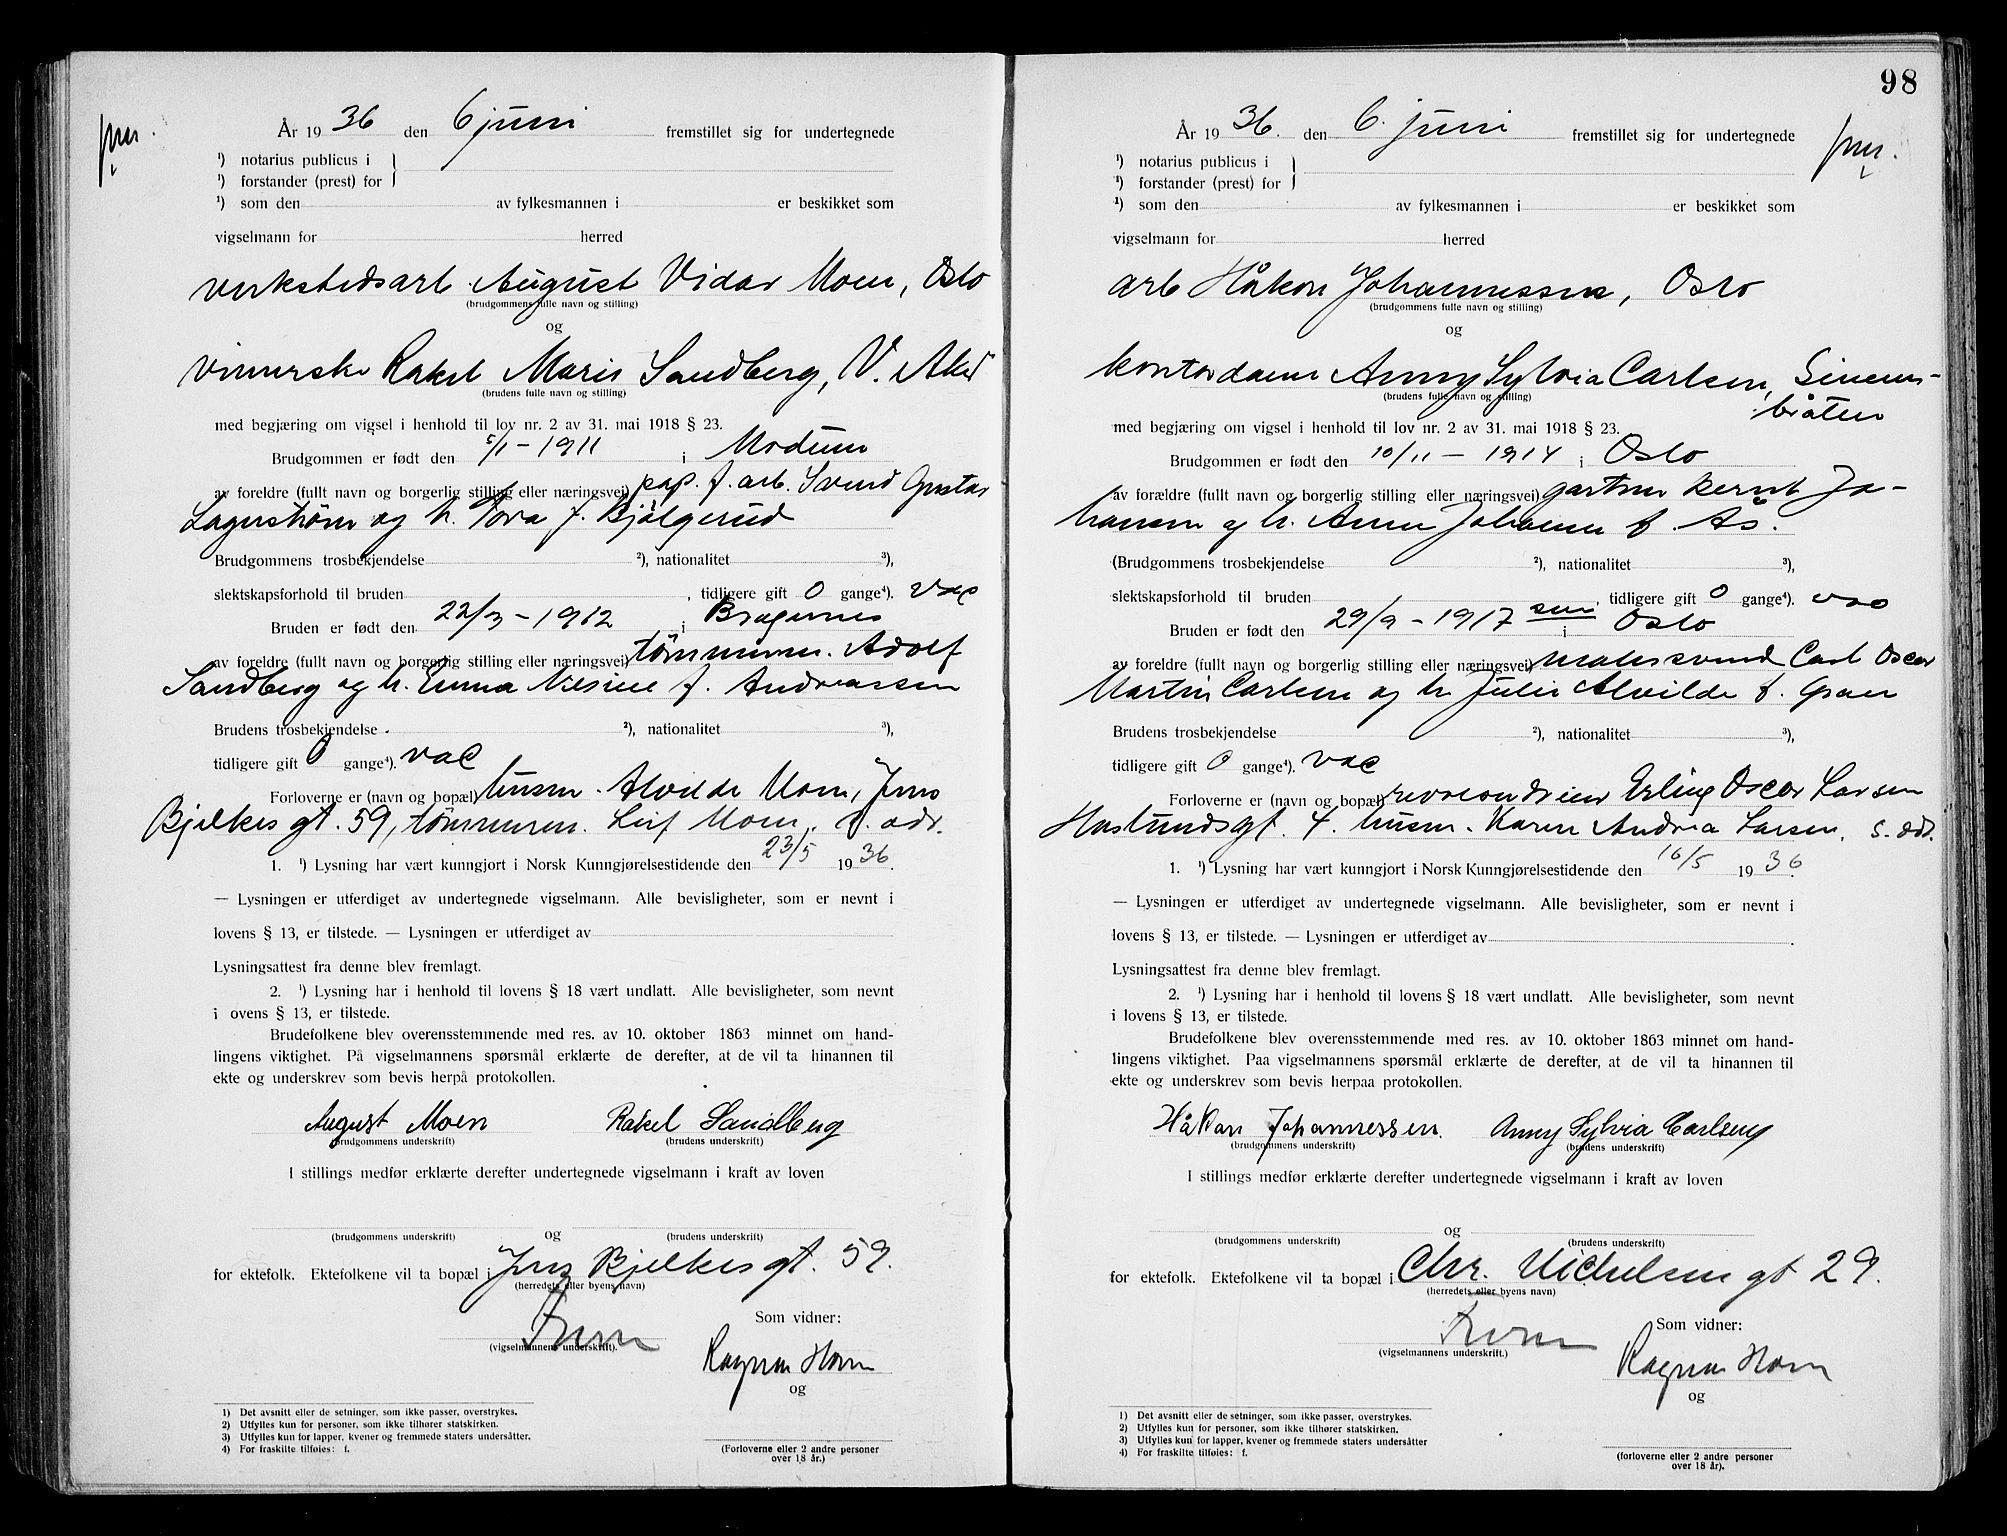 pm.
År 1936 den 6 juni fremstillet sig for undertegnede
¹) notarius publicus i
¹) forstander (prest) for
¹) som den av fylkesmannen i er beskikket som
vigselmann for herred
verkstedsarb August Vidar Moen, Oslo
(brudgommens fulle navn og stilling)
og
Rakel Marie Sandberg, V. Aker
(brudens fulle navn og stilling)
med begjæring om vigsel i henhold til lov nr. 2 av 31. mai 1918 § 23.
Brudgommen er født den 5/1 – 1911 i Modum
av foreldre (fullt navn og borgerlig stilling eller næringsvei) pap. f. arb. Svend Gustav
Lagerstrøm og h. Tora f. Bjølgerud
Brudgommens trosbekjendelse ²), nationalitet ³),
slektskapsforhold til bruden , tidligere gift 0 gange⁴). vac
Bruden er født den 22/3 – 1912 i Bragernes
av foreldre (fullt navn og borgerlig stilling eller næringsvei) tømmerm. Adolf
Sandberg og h. Emma Nilsine f. Andreassen
Brudens trosbekjendelse ²), nationalitet ³),
tidligere gift 0 gange⁴). vac
Forloverne er (navn og bopæl) husm. Alvilde Moen, Jens
Bjelkes gt. 59, tømmerm. Leif Moen, s. adr.
1. ¹) Lysning har vært kunngjort i Norsk Kunngjørelsestidende den 23/5 1936.
— Lysningen er utferdiget av undertegnede vigselmann. Alle bevisligheter, som er nevnt i
lovens § 13, er tilstede. — Lysningen er utferdiget av
Lysningsattest fra denne blev fremlagt.
2. ¹) Lysning har i henhold til lovens § 18 vært undlatt. Alle bevisligheter, som nevnt
i ovens § 13, er tilstede.
Brudefolkene blev overensstemmende med res. av 10. oktober 1863 minnet om hand-
lingens viktighet. På vigselmannens spørsmål erklærte de derefter, at de vil ta hinannen til
ekte og underskrev som bevis herpå protokollen.
August Moen Rakel Sandberg
(brudgommens underskrift) (brudens underskrift)
I stillings medfør erklærte derefter undertegnede vigselmann i kraft av loven
og
(brudgommens underskrift) (brudens underskrift)
for ektefolk. Ektefolkene vil ta bopæl i Jens Bjelkes gt. 59.
(herredets eller byens navn)
Som vidner:
(vigselmannens underskrift).
Ragna Horn
og
1) Det avsnitt eller de setninger, som ikke passer, overstrykes.
2) Utfylles kun for personer, som ikke tilhører statskirken.
3) Utfylles kun for lapper, kvener og fremmede staters undersåtter.
4) For fraskilte tilføies: f.
(Forloverne eller 2 andre personer
over 18 år.)
98
År 1936. den 6. juni fremstillet sig for undertegnede
pm.
¹) notarius publicus i
¹) forstander (prest) for
¹) som den av fylkesmannen i er beskikket som
vigselmann for herred
arb Håkon Johannessen, Oslo
(brudgommens fulle navn og stilling)
og
kontordame Anny Sylvia Carlsen, Simens-
bråten
(brudens fulle navn og stilling)
med begjæring om vigsel i henhold til lov nr. 2 av 31. mai 1918 § 23.
Brudgommen er født den 10/11 – 1914 i Oslo
av forældre (fullt navn og borgerlig stilling eller næringsvei) gartner Bernt Jo-
hansen og h. Anna Johanne f. Ås.
(Brudgommens trosbekjendelse ²), nationalitet ³),
slektskapsforhold til bruden , tidligere gift 0 gange⁴). vac
Bruden er født den 29/9 – 1917 i Oslo
av foreldre (fullt navn og borgerlig stilling eller næringsvei) malersvend Carl Oscar
Martin Carlsen og h. Julie Alvilde f. Graer
Brudens trosbekjendelse ²), nationalitet ³),
tidligere gift 0 gange⁴). vac
Forloverne er (navn og bopæl) Erling Oscar Larsen
Haslundsgt. 4. husm. Karen Andrea Larsen, s. adr.
1. ¹) Lysning har vært kunngjort i Norsk Kunngjørelsestidende den 16/5 1936.
— Lysningen er utferdiget av undertegnede vigselmann. Alle bevisligheter, som er nevnt i
lovens § 13, er tilstede. — Lysningen er utferdiget av
Lysningsattest fra denne blev fremlagt.
2. ¹) Lysning har i henhold til lovens § 18 vært undlatt. Alle bevisligheter, som nevnt
i lovens § 13, er tilstede.
Brudefolkene blev overensstemmende med res. av 10. oktober 1863 minnet om hand-
lingens viktighet. Paa vigselmannens spørsmål erklærte de derefter, at de vil ta hinannen til
ekte og underskrev som bevis herpaa protokollen.
Håkon Johannessen. Anny Sylvia Carlsen
(brudgommens underskrift) (brudens underskrift)
I stillings medfør erklærte derefter undertegnede vigselmann i kraft av loven
og
(brudgommens underskrift) (brudens underskrift)
for ektefolk. Ektefolkene vil ta bopæl i Chr. Michelsens gt 29.
(herredets eller byens navn)
Som vidner:
(vigselmannens underskrift.)
Ragna Horn
og
1) Det avsnitt eller de setninger, som ikke passer, overstrykes.
2) Utfylles kun for personer, som ikke tilhører statskirken.
3) Utfylles kun for lapper, kvener og fremmede staters undersåtter
4) For fraskilte tilføies: f.
(forloverne eller 2 andre personer
over 18 år).